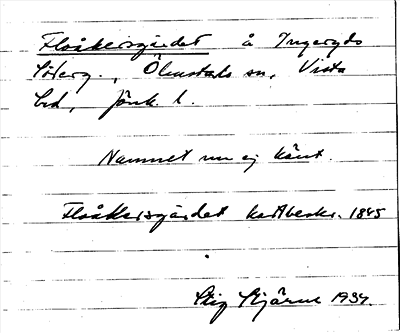 Flaåkersgärdet å Ingeryds
säterg., Ölmstads sn, Vista
hd, Jönk. l.
Namnet nu ej känt.
Flaåkersgärdet kartbeskr. 1845
Stig Stjärne 1934.